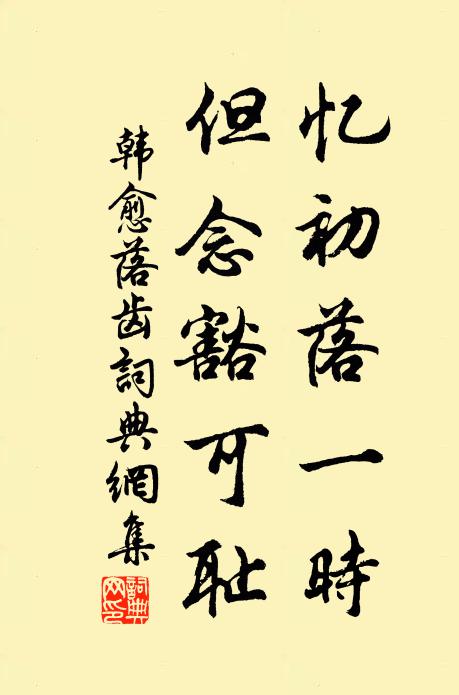 忆初落一時
但念豁可耻
韩愈落齿詞典網集
詞典网印